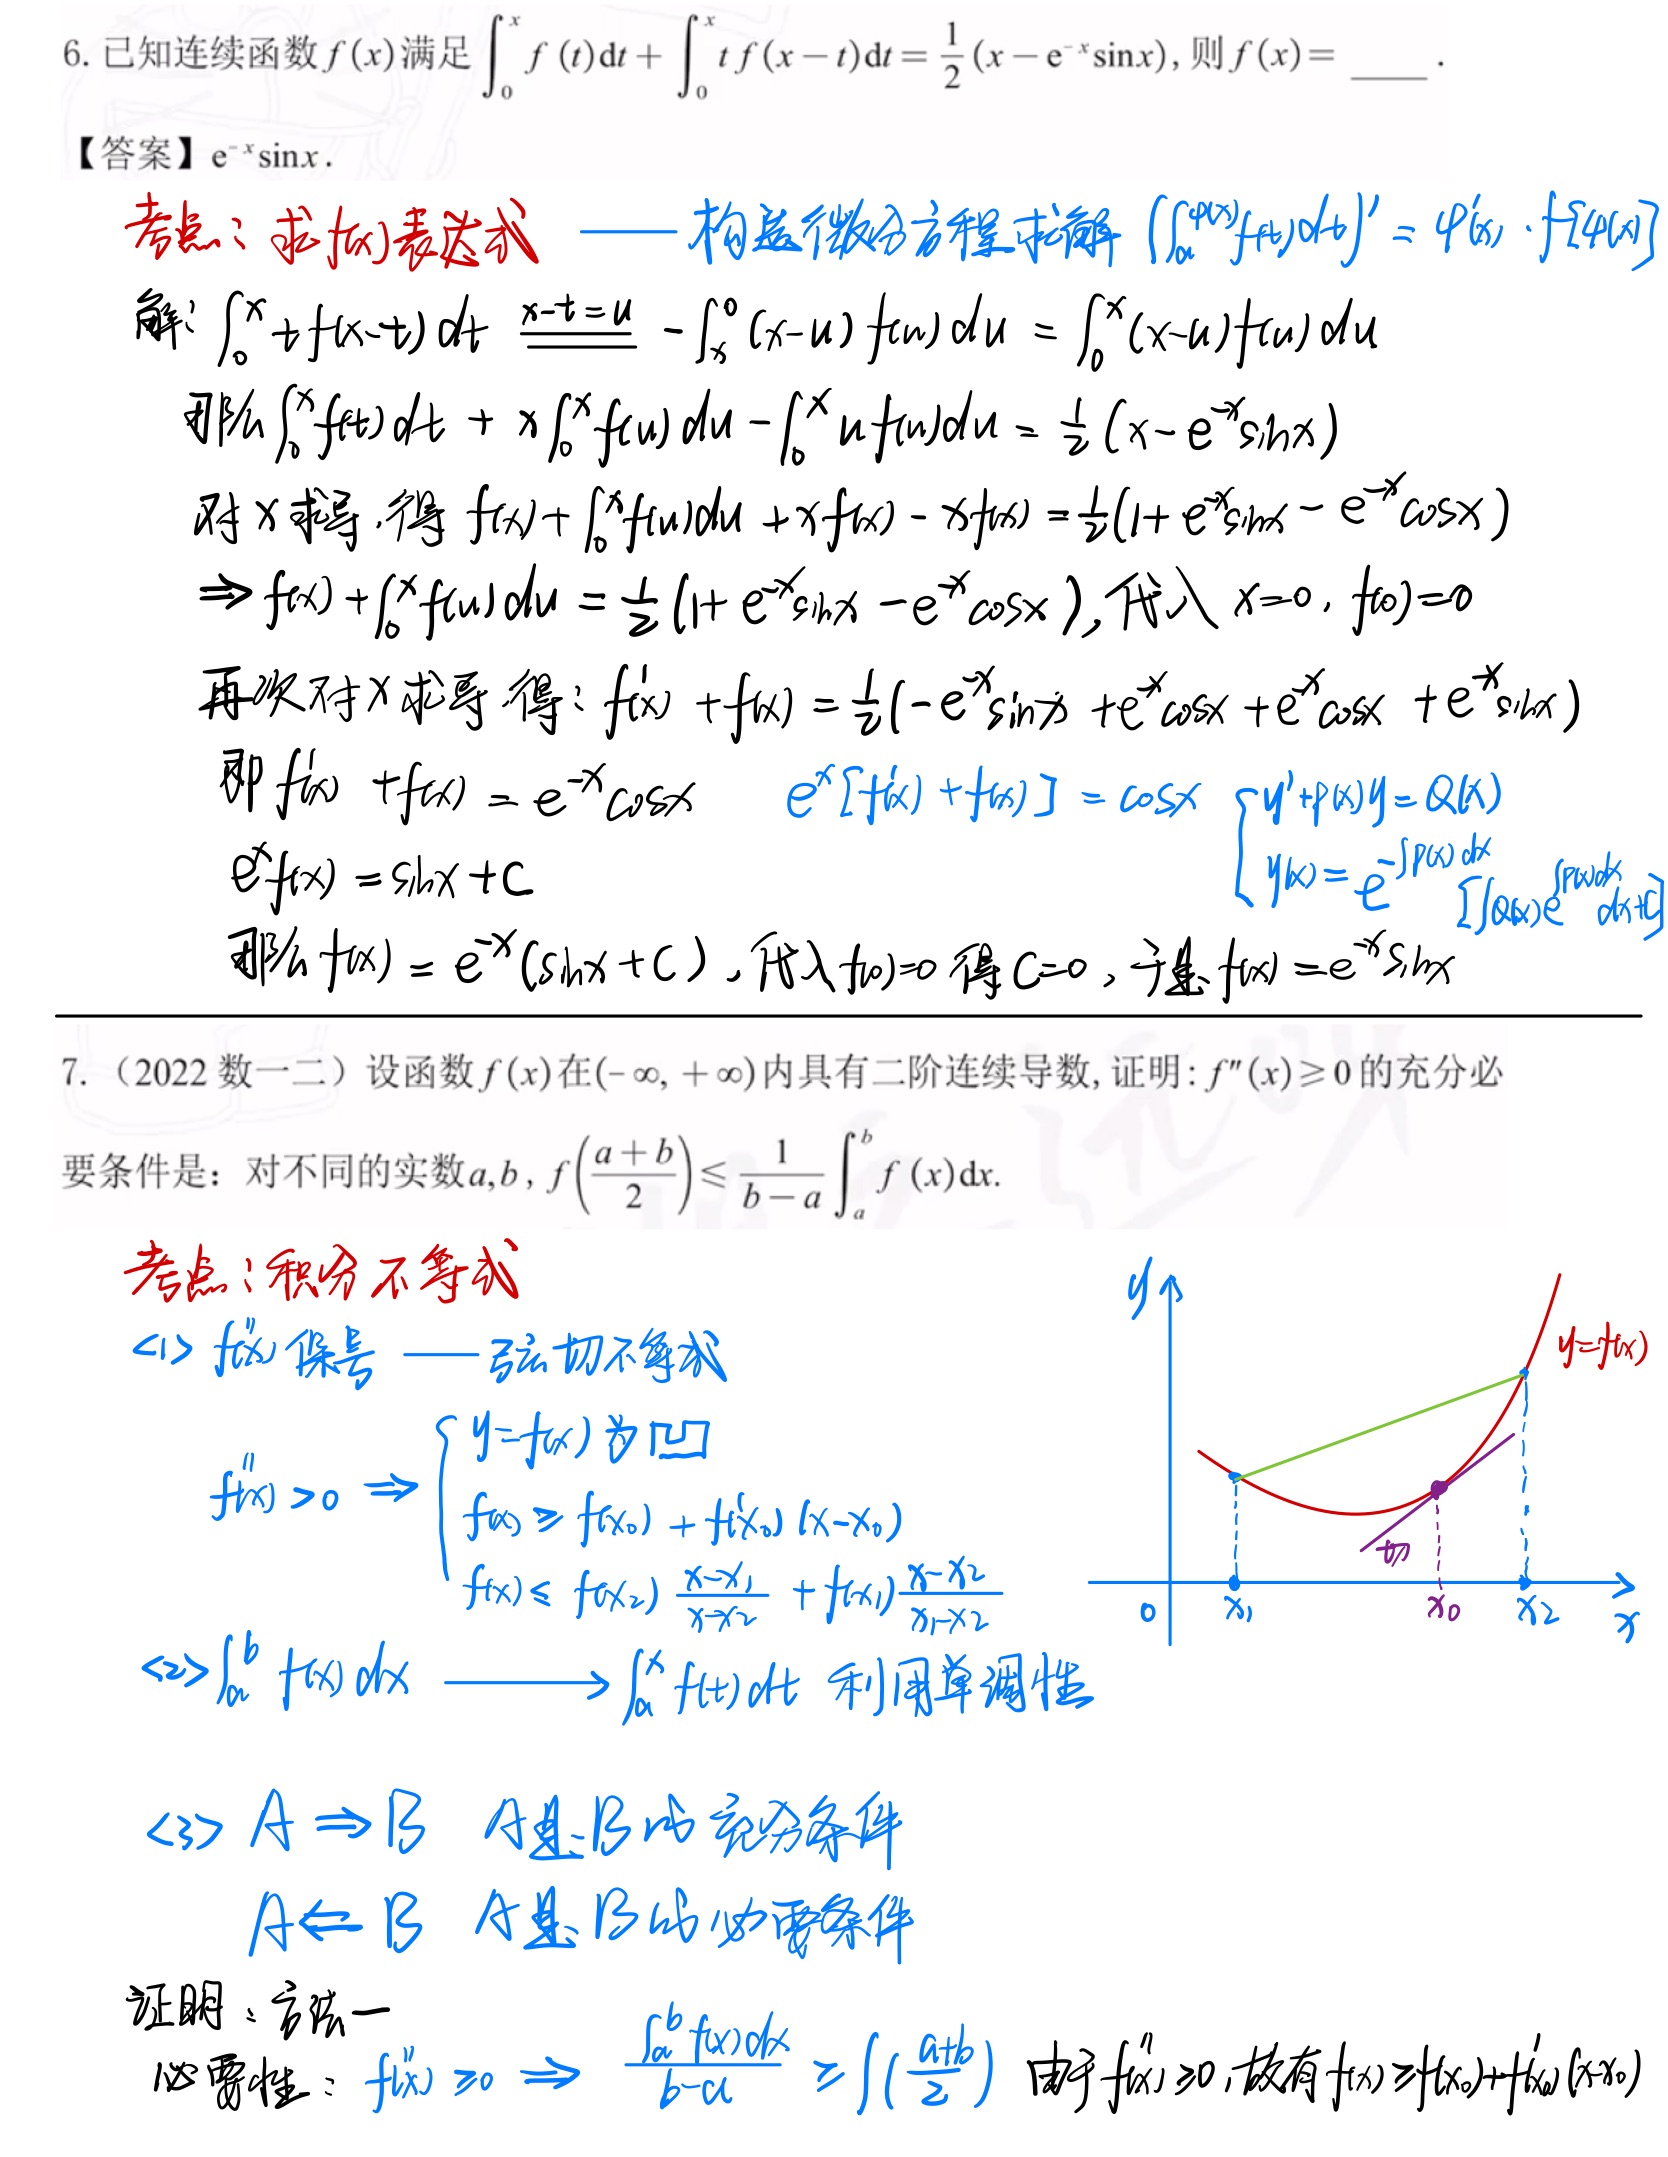 6. 已知连续函数 f(x)满足 ∫₀ˣ f(t)dt + ∫₀ˣ t f(x−t)dt = 1/2 (x − e⁻ˣ sinx), 则 f(x) = ____ .
【答案】e⁻ˣ sinx .
考点: 求f(x)表达式 —— 构造微分方程求解 (∫ₐ^φ(x) f(t)dt)′ = φ′(x)·f[φ(x)]
解: ∫₀ˣ t f(x−t) dt x−t=u −∫ₓ⁰ (x−u) f(u) du = ∫₀ˣ (x−u) f(u) du
那么 ∫₀ˣ f(t) dt + x∫₀ˣ f(u) du − ∫₀ˣ u f(u) du = 1/2 (x − e⁻ˣ sinx)
对 x 求导, 得 f(x) + ∫₀ˣ f(u) du + x f(x) − x f(x) = 1/2 (1 + e⁻ˣ sinx − e⁻ˣ cosx)
⇒ f(x) + ∫₀ˣ f(u) du = 1/2 (1 + e⁻ˣ sinx − e⁻ˣ cosx), 代入 x=0, f(0)=0
再次对 x 求导 得: f′(x) + f(x) = 1/2 (−e⁻ˣ sinx + e⁻ˣ cosx + e⁻ˣ cosx + e⁻ˣ sinx)
即 f′(x) + f(x) = e⁻ˣ cosx eˣ[f′(x) + f(x)] = cosx { y′+P(x)y=Q(x)
eˣ f(x) = sinx + C y(x) = e^(−∫P(x)dx) [∫Q(x)e^(∫P(x)dx) dx+C]
那么 f(x) = e⁻ˣ (sinx + C), 代入 f(0)=0 得 C=0, 于是 f(x) = e⁻ˣ sinx
7. （2022 数一二）设函数 f(x)在(−∞, +∞)内具有二阶连续导数, 证明: f″(x)≥0 的充分必
要条件是：对不同的实数a,b, f((a+b)/2) ≤ 1/(b−a) ∫ₐᵇ f(x)dx.
考点: 积分不等式
<1> f″(x) 保号 —— 弦切不等式
f″(x) >0 ⇒ { y=f(x) 为凹
f(x) ≥ f(x₀) + f′(x₀) (x−x₀)
f(x) ≤ f(x₂) (x−x₁)/(x−x₂) + f(x₁) (x−x₂)/(x₁−x₂)
y
y=f(x)
切
0 x₁ x₀ x₂ x
<2> ∫ₐᵇ f(x) dx → ∫ₐˣ f(t) dt 利用单调性
<3> A ⇒ B A是B的充分条件
A ⇐ B A是B的必要条件
证明: 方法一
必要性: f″(x) ≥0 ⇒ ∫ₐᵇ f(x)dx/(b−a) ≥ f((a+b)/2) 由于 f″(x) ≥0, 故有 f(x) ≥ f(x₀)+f′(x₀)(x−x₀)